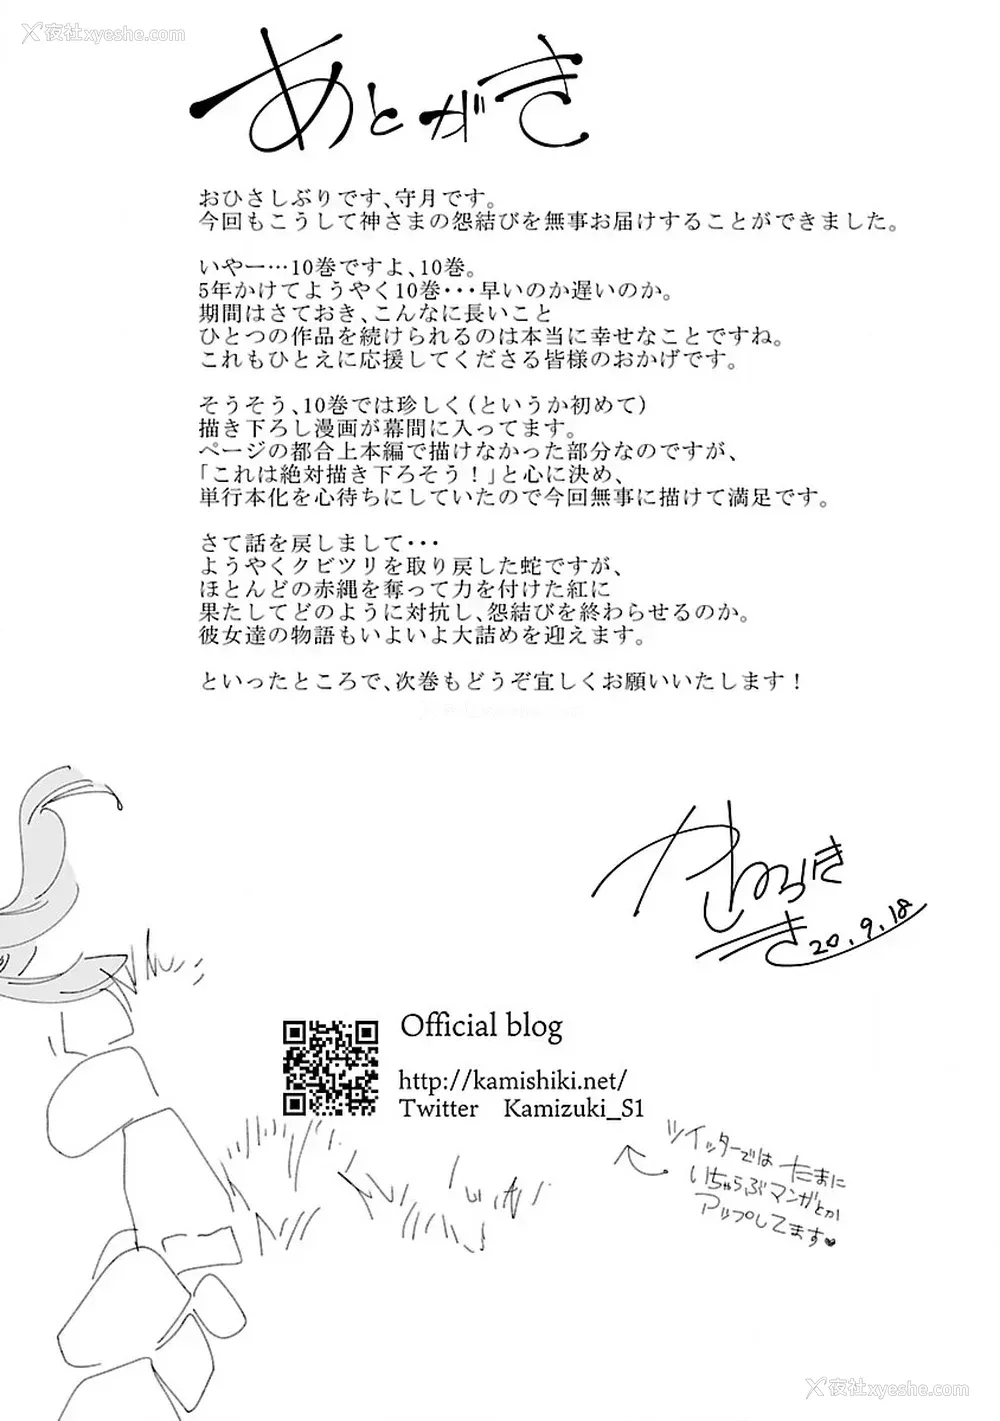 夜社xyeshe.com
あとがき
おひさしぶりです、守月です。
今回もこうして神さまの怨結びを無事お届けすることができました。
いやー…10巻ですよ、10巻。
5年かけてようやく10巻・・・早いのか遅いのか。
期間はさておき、こんなに長いこと
ひとつの作品を続けられるのは本当に幸せなことですね。
これもひとえに応援してくださる皆様のおかげです。
そうそう、10巻では珍しく（というか初めて）
描き下ろし漫画が幕間に入ってます。
ページの都合上本編で描けなかった部分なのですが、
「これは絶対描き下ろそう！」と心に決め、
単行本化を心待ちにしていたので今回無事に描けて満足です。
さて話を戻しまして・・・
ようやくクビツリを取り戻した蛇ですが、
ほとんどの赤縄を奪って力を付けた紅に
果たしてどのように対抗し、怨結びを終わらせるのか。
彼女達の物語もいよいよ大詰めを迎えます。
といったところで、次巻もどうぞ宜しくお願いいたします！
20.9.18
Official blog
http://kamishiki.net/
Twitter Kamizuki_S1
ツイッターでは たまに
いちゃらぶマンガとか
アップしてます♥
夜社xyeshe.com